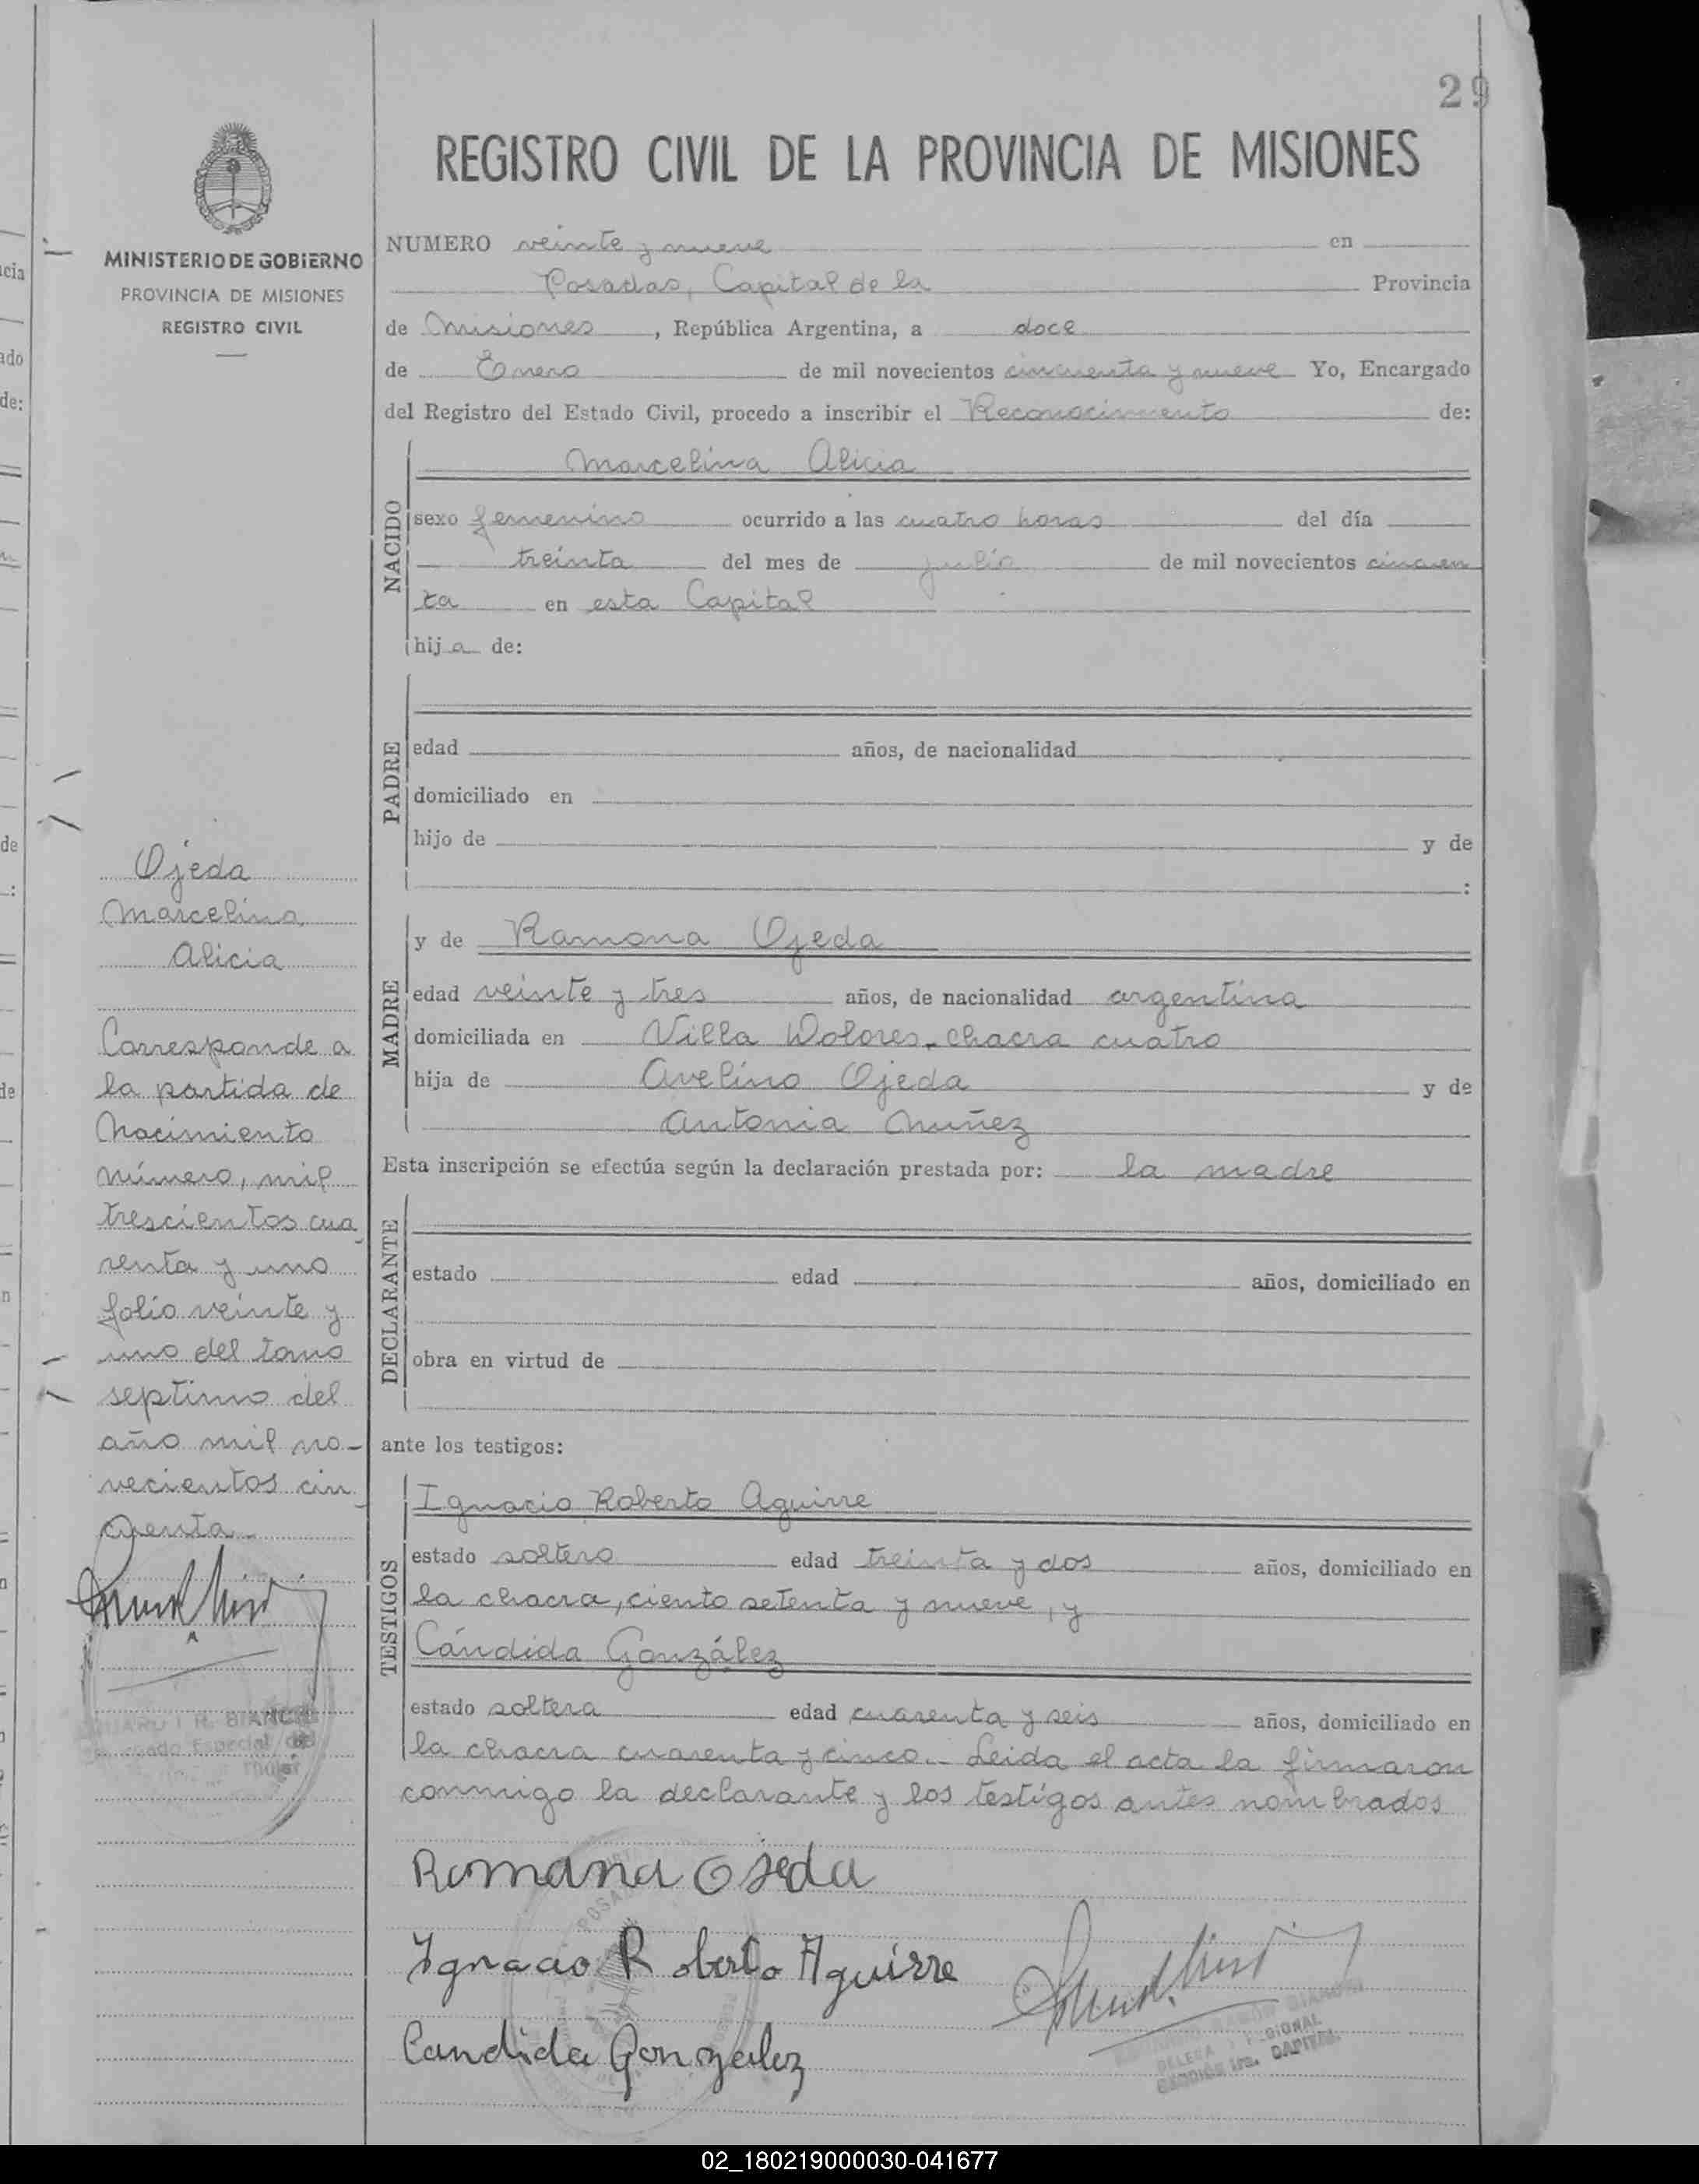 29
REGISTRO CIVIL DE LA PROVINCIA DE MISIONES
MINISTERIO DE GOBIERNO
PROVINCIA DE MISIONES
REGISTRO CIVIL
NUMERO veinte y nueve en
Posadas, Capital de la Provincia
de Misiones, República Argentina, a doce
de Enero de mil novecientos cincuenta y nueve Yo, Encargado
del Registro del Estado Civil, procedo a inscribir el Reconocimiento de:
NACIDO
Marcelina Alicia
sexo femenino ocurrido a las cuatro horas del día
treinta del mes de julio de mil novecientos cincuen
ta en esta Capital
hija de:
PADRE
edad años, de nacionalidad
domiciliado en
hijo de y de
:
MADRE
y de Ramona Ojeda
edad veinte y tres años, de nacionalidad argentina
domiciliada en Villa Dolores-chacra cuatro
hija de Avelino Ojeda y de
Antonia Muñez
Esta inscripción se efectúa según la declaración prestada por: la madre
DECLARANTE
estado edad años, domiciliado en
obra en virtud de
ante los testigos:
TESTIGOS
Ignacio Roberto Aguirre
estado soltero edad treinta y dos años, domiciliado en
la chacra, ciento setenta y nueve, y
Cándida González
estado soltera edad cuarenta y seis años, domiciliado en
la chacra cuarenta y cinco.- Leida el acta la firmaron
conmigo la declarante y los testigos antes nombrados
Romana Ojeda
Ignacio Roberto Aguirre
Candida Gonzalez
Ojeda
Marcelina
Alicia
Corresponde a
la partida de
Nacimiento
número, mil
trescientos cua
renta y uno
folio veinte y
uno del tomo
septimo del
año mil no-
vecientos cin
cuenta
BIANCHI
Especial
POSADAS
CAPITAL
02_180219000030-041677